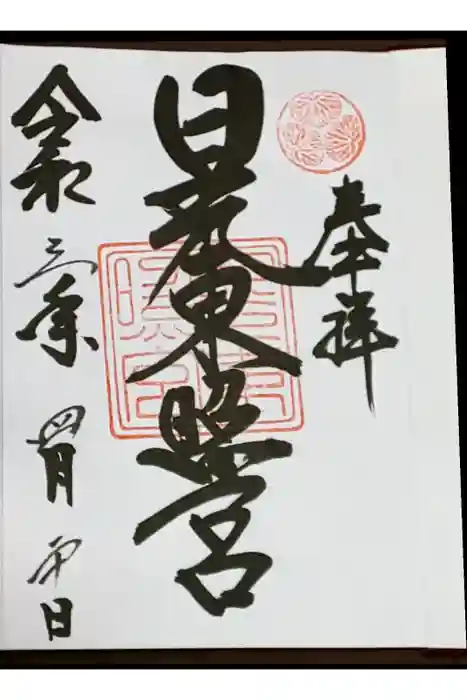 奉拝
日光東照宮
令和三年 四月 日